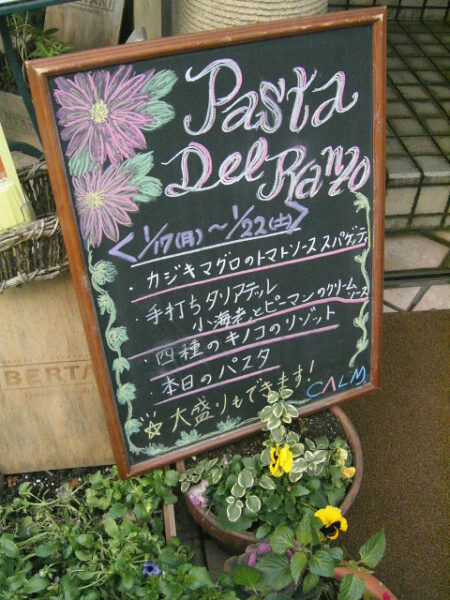 Pasta
Del Ranzo
<1/17(月)~1/22(土)>
・カジキマグロのトマトソース スパゲッティ
・手打ちタリアテッレ
小海老とピーマンのクリームソース
・四種のキノコのリゾット
・本日のパスタ
☆大盛りもできます!
CALM
BERTA